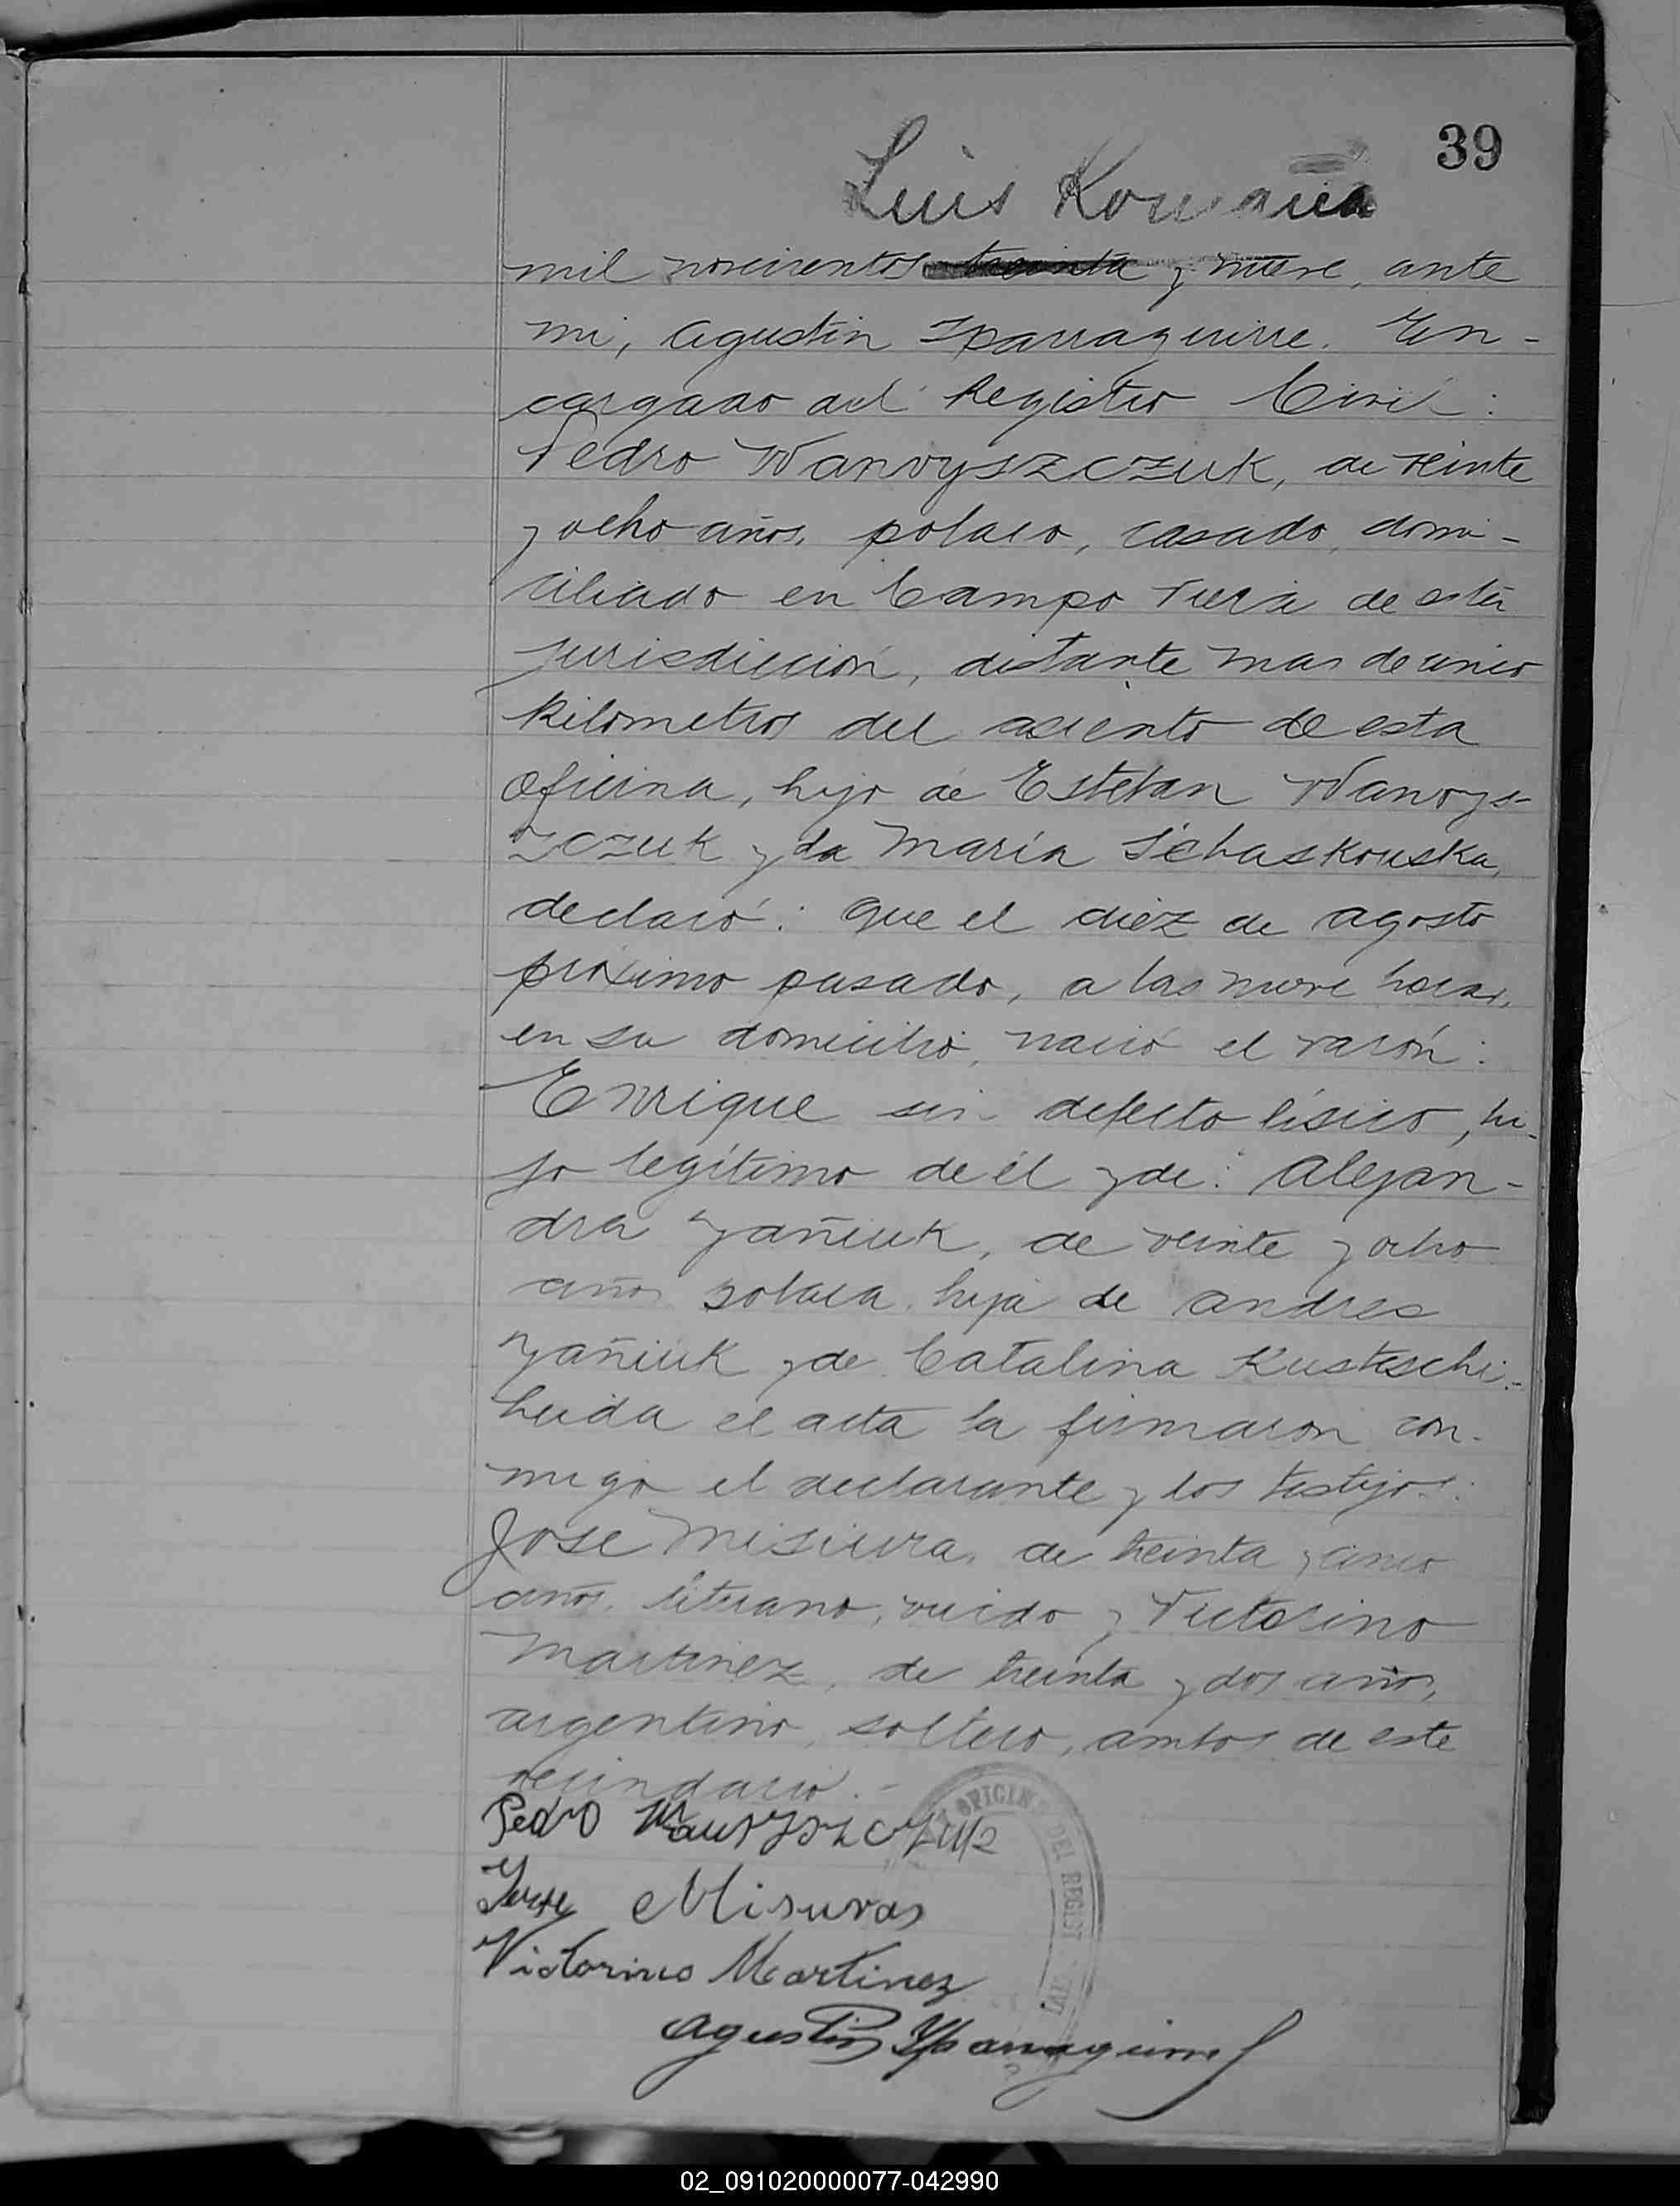 39
Luis
mil novecientos treinta y nueve, ante
mi, Agustín Iparraguirre. En-
cargado del Registro Civil:
Pedro Wanvyszczuk, de veinte
y ocho años, polaco, casado, domi-
ciliado en Campo Viera de esta
jurisdicción, distante mas de cinco
kilometros del asiento de esta
oficina, hijo de Esteban Wanvys-
zczuk y da María Sebaskouska,
declaró: que el diez de agosto
próximo pasado, a las nueve horas,
en su domicilio, nació el varón:
Enrique sin defecto físico, hi-
jo legítimo de él y de: Alejan-
dra Yañiuk, de veinte y ocho
años polaca, hija de Andres
Yañiuk y de Catalina Kusteschi.-
Leida el acta la firmaron con-
migo el declarante y los testigos:
José Misiura, de treinta y cinco
años, lituano, viudo y Victorino
Martinez, de treinta y dos años,
argentino, soltero, ambos de este
vecindario.-
OFICINA DEL REGIST
Pedro
Misuras
Victorino Martinez
Agustin Yparraguirre
02_091020000077-042990